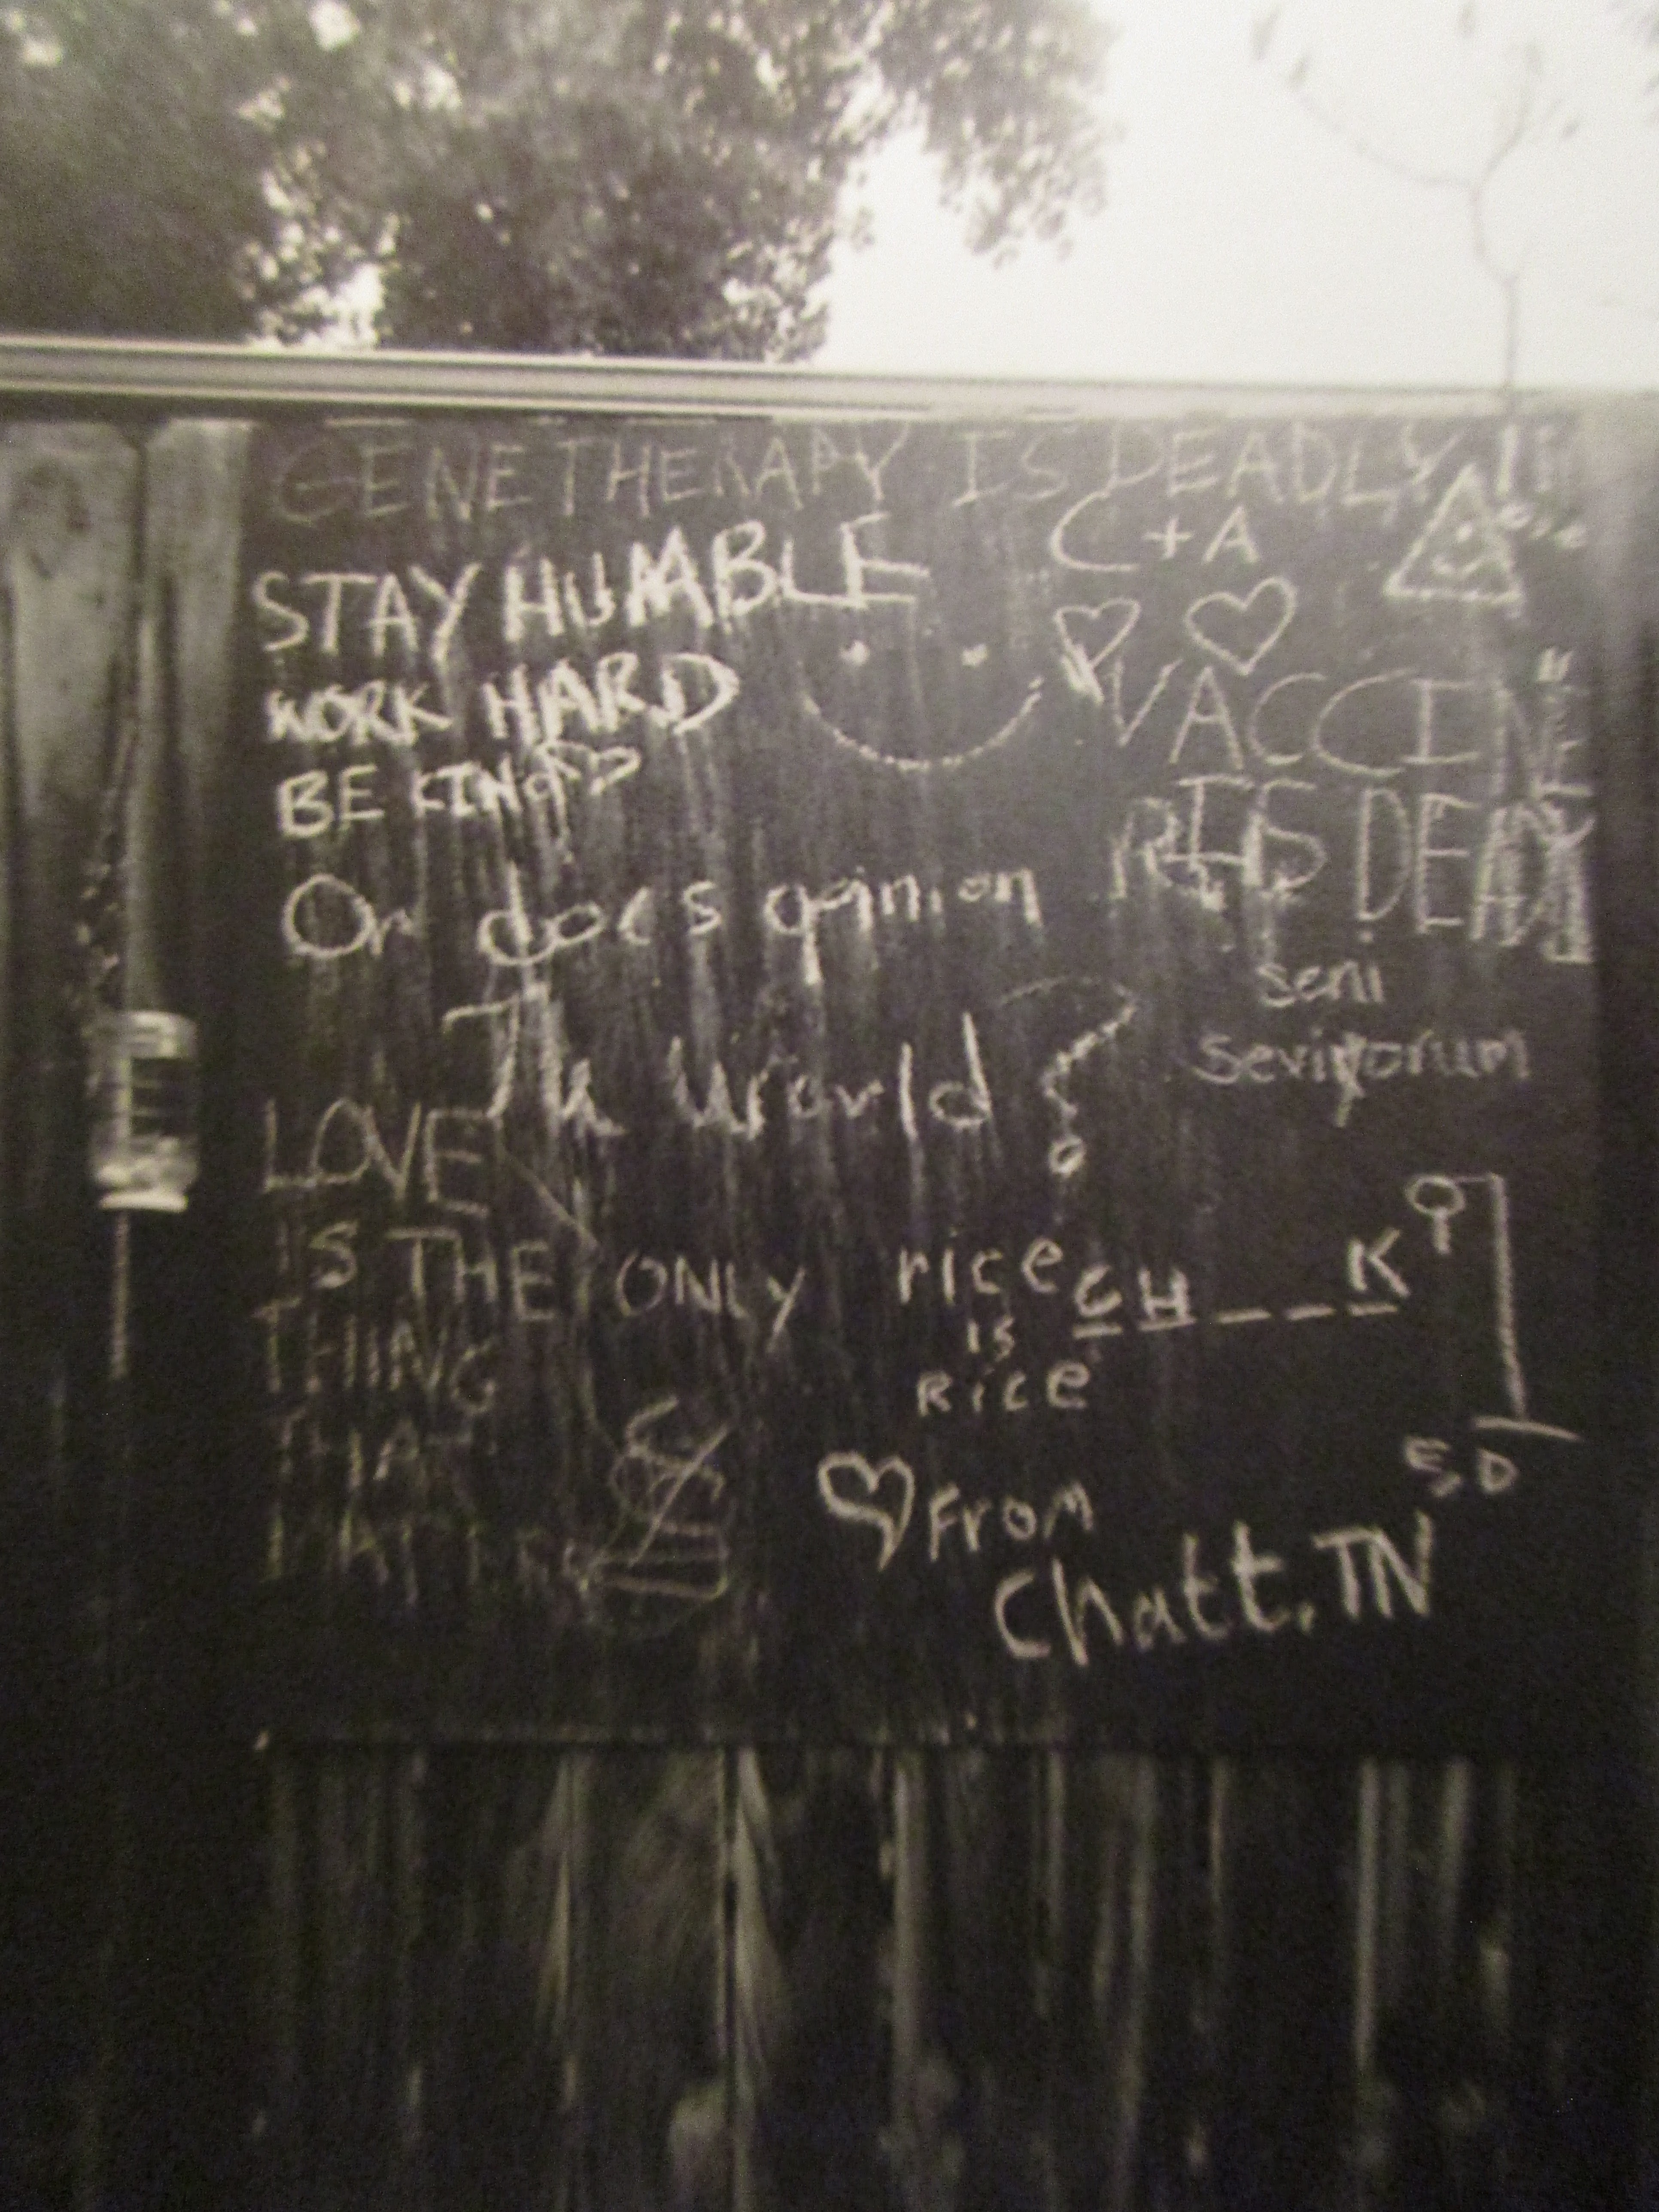 GENE THERAPY IS DEADLY !!!
C + A
STAY HUMBLE
WORK HARD
BE KIND
VACCINE
IS DEADLY
Or does opinion
seni
Th World ?
LOVE
IS THE ONLY
THING
THAT
rice
is
Rice
CH _ _ _ K
E, D
From
Chatt, TN